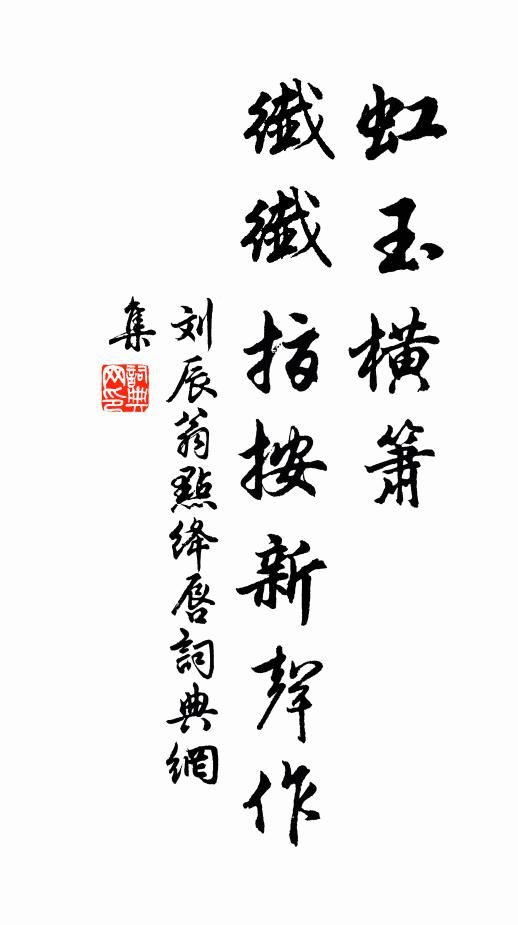 虹玉横箫
纖纖指按新聲作
刘辰翁點绛唇詞典網
集
詞典网印